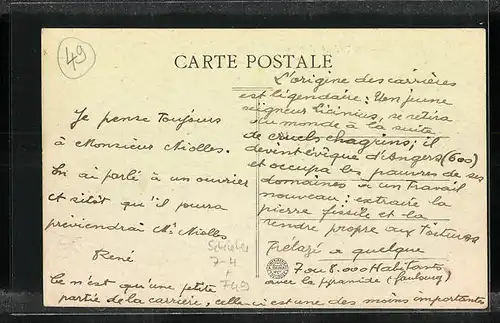 49
CARTE POSTALE
Je pense toujours
à Monsieur Niolles.
Lui ai parlé à un ouvrier
et sitôt qu'il pourra
préviendrai Mr Niolles
René
Ce n'est qu'une petite
partie de la carrière, celle-ci est une des moins importantes
L'origine des carrières
est légendaire: Un jeune
seigneur Licinius, se retira
du monde à la suite
de cruels chagrins; il
devint évêque d'Angers (600)
et occupa les pauvres de ses
domaines à un travail
nouveau: extraire la
pierre fissile et la
rendre propre aux toitures
Trélazé a quelque
7 ou 8.000 Habitants
avec la pyramide (faubourg)
Schiefer
7-4
+
749